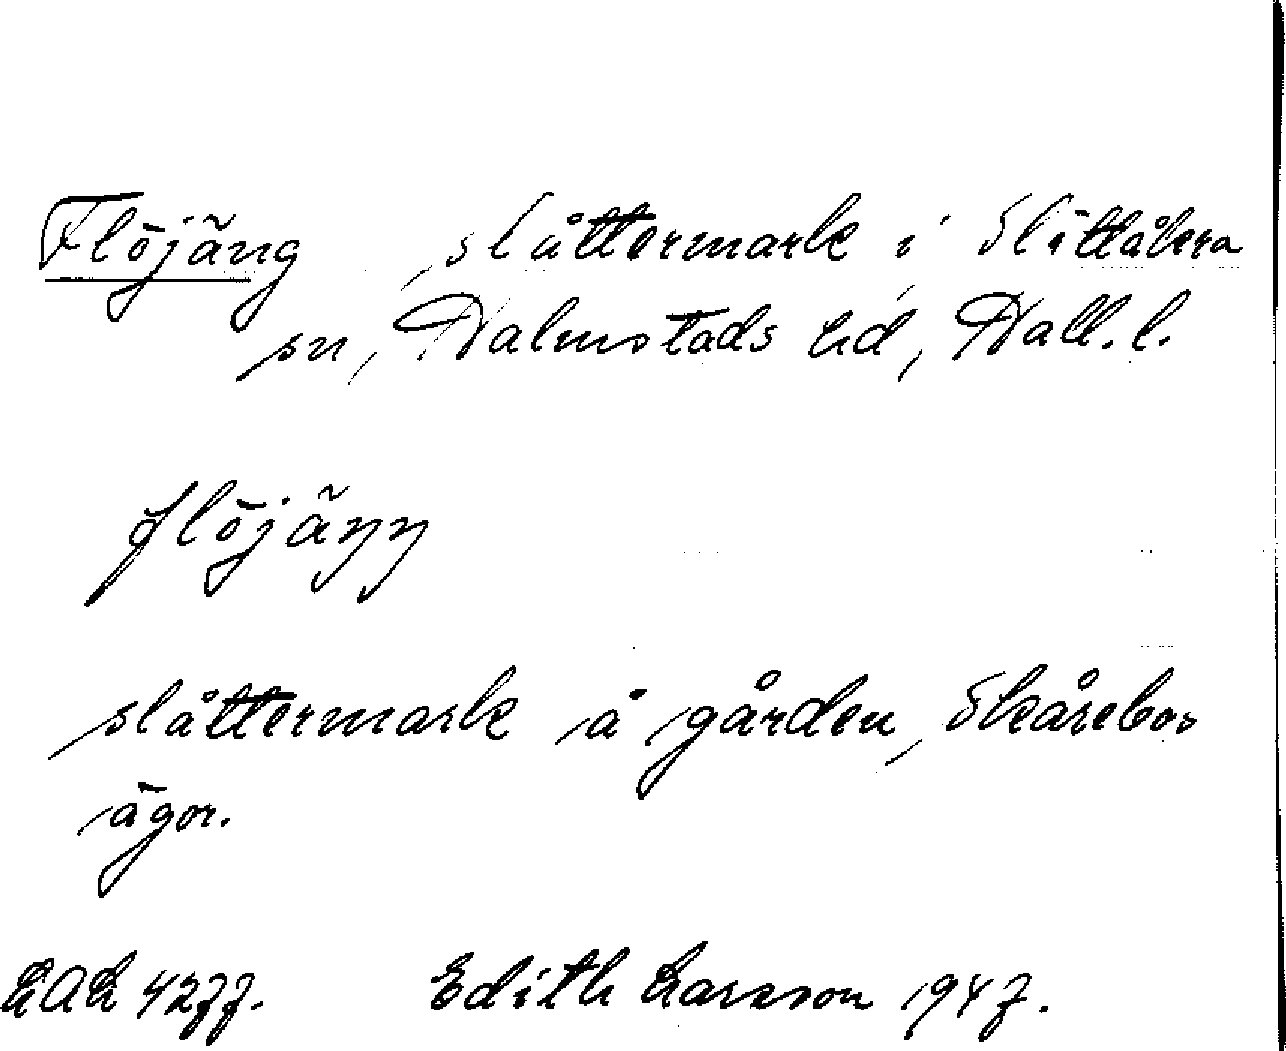 Flöjäng, slåttermark i Slättåkra
sn, Halmstads hd, Hall. l.
flöjäŋŋ
slåttermark å gården, Skårebos
ägor.
LAL 4277. Edith Larsson 1947.